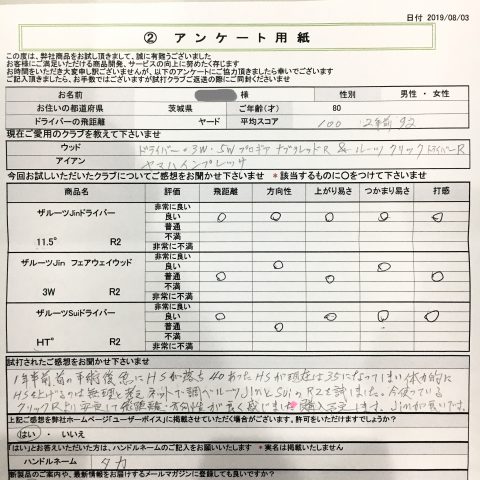 日付 2019/08/03
② アンケート用紙
この度は、弊社商品をお試し頂きまして、誠に有難うございました
お客様にご満足いただける商品開発、サービスの向上に努めたく存じます
お時間をいただき大変申し訳ございませんが、以下のアンケートにご協力頂きましたら幸いでございます
ご記入頂きましたら、お手数ではございますが試打クラブご返送の際にご同封くださいませ
お名前 様 性別 男性 ・ 女性
お住いの都道府県 茨城県 ご年齢(才) 80
ドライバーの飛距離 ヤード 平均スコア 100 2年前'92
現在ご愛用のクラブを教えて下さいませ
ウッド ドライバー・3W・5W プロギア R & ルーツ クリックドライバーR
アイアン ヤマハインプレッサ
今回お試しいただいたクラブについてご感想をお聞かせ下さいませ *該当するものに〇をつけて下さいませ
商品名 評価 飛距離 方向性 上がり易さ つかまり易さ 打感
ザルーツJinドライバー
11.5° R2
非常に良い
良い 〇 〇 〇 〇 〇
普通
不満
非常に不満
ザルーツJin フェアウェイウッド
3W R2
非常に良い
良い 〇 〇
普通 〇 〇 〇
不満
非常に不満
ザルーツSuiドライバー
HT° R2
非常に良い
良い 〇 〇 〇 〇
普通 〇
不満
非常に不満
試打されたご感想をお聞かせ下さいませ
1年半前の手術後急にHSが落ち40あったHSが現在は35になってしまい体力的に
HSを上げるのは無理と考えネットで調べルーツJinとSuiのR2を試しました。今使っている
クリックRより安定して飛距離・方向性が良く感じました 購入予定します。Jinが良いです。
上記ご感想を弊社ホームページ「ユーザーボイス」に掲載させていただく場合がございます。許可をいただけますでしょうか?
はい ・ いいえ
「はい」とお答えいただいた方は、ハンドルネームのご記入をお願いいたします *実名は掲載いたしません
ハンドルネーム タカ
新製品のご案内や、最新情報をお届けするメールマガジンに登録しても良いですか?